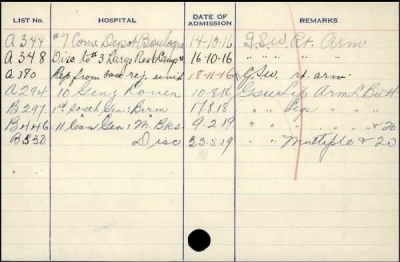 LIST No. HOSPITAL DATE OF ADMISSION REMARKS
A 344 #7 Conv. Depot Boulogne 14-10-16 G.S.W. Rt. Arm
A 348 Disc to #3 Large Rest Camp 16-10-16 " " " "
A 380 Rep from base 18-11-16 G.S.W. rt. arm
A 294 10 Gen Rouen 10-8-18 G.S.W. Arm L Butt
B 297 1st South Gen: Birm 17 8 18 " "
B 446 11 Can Gen: M. Bks 9-2-19 " " " " & 20
B 530 Disc 23-5-19 " Multiple & 20